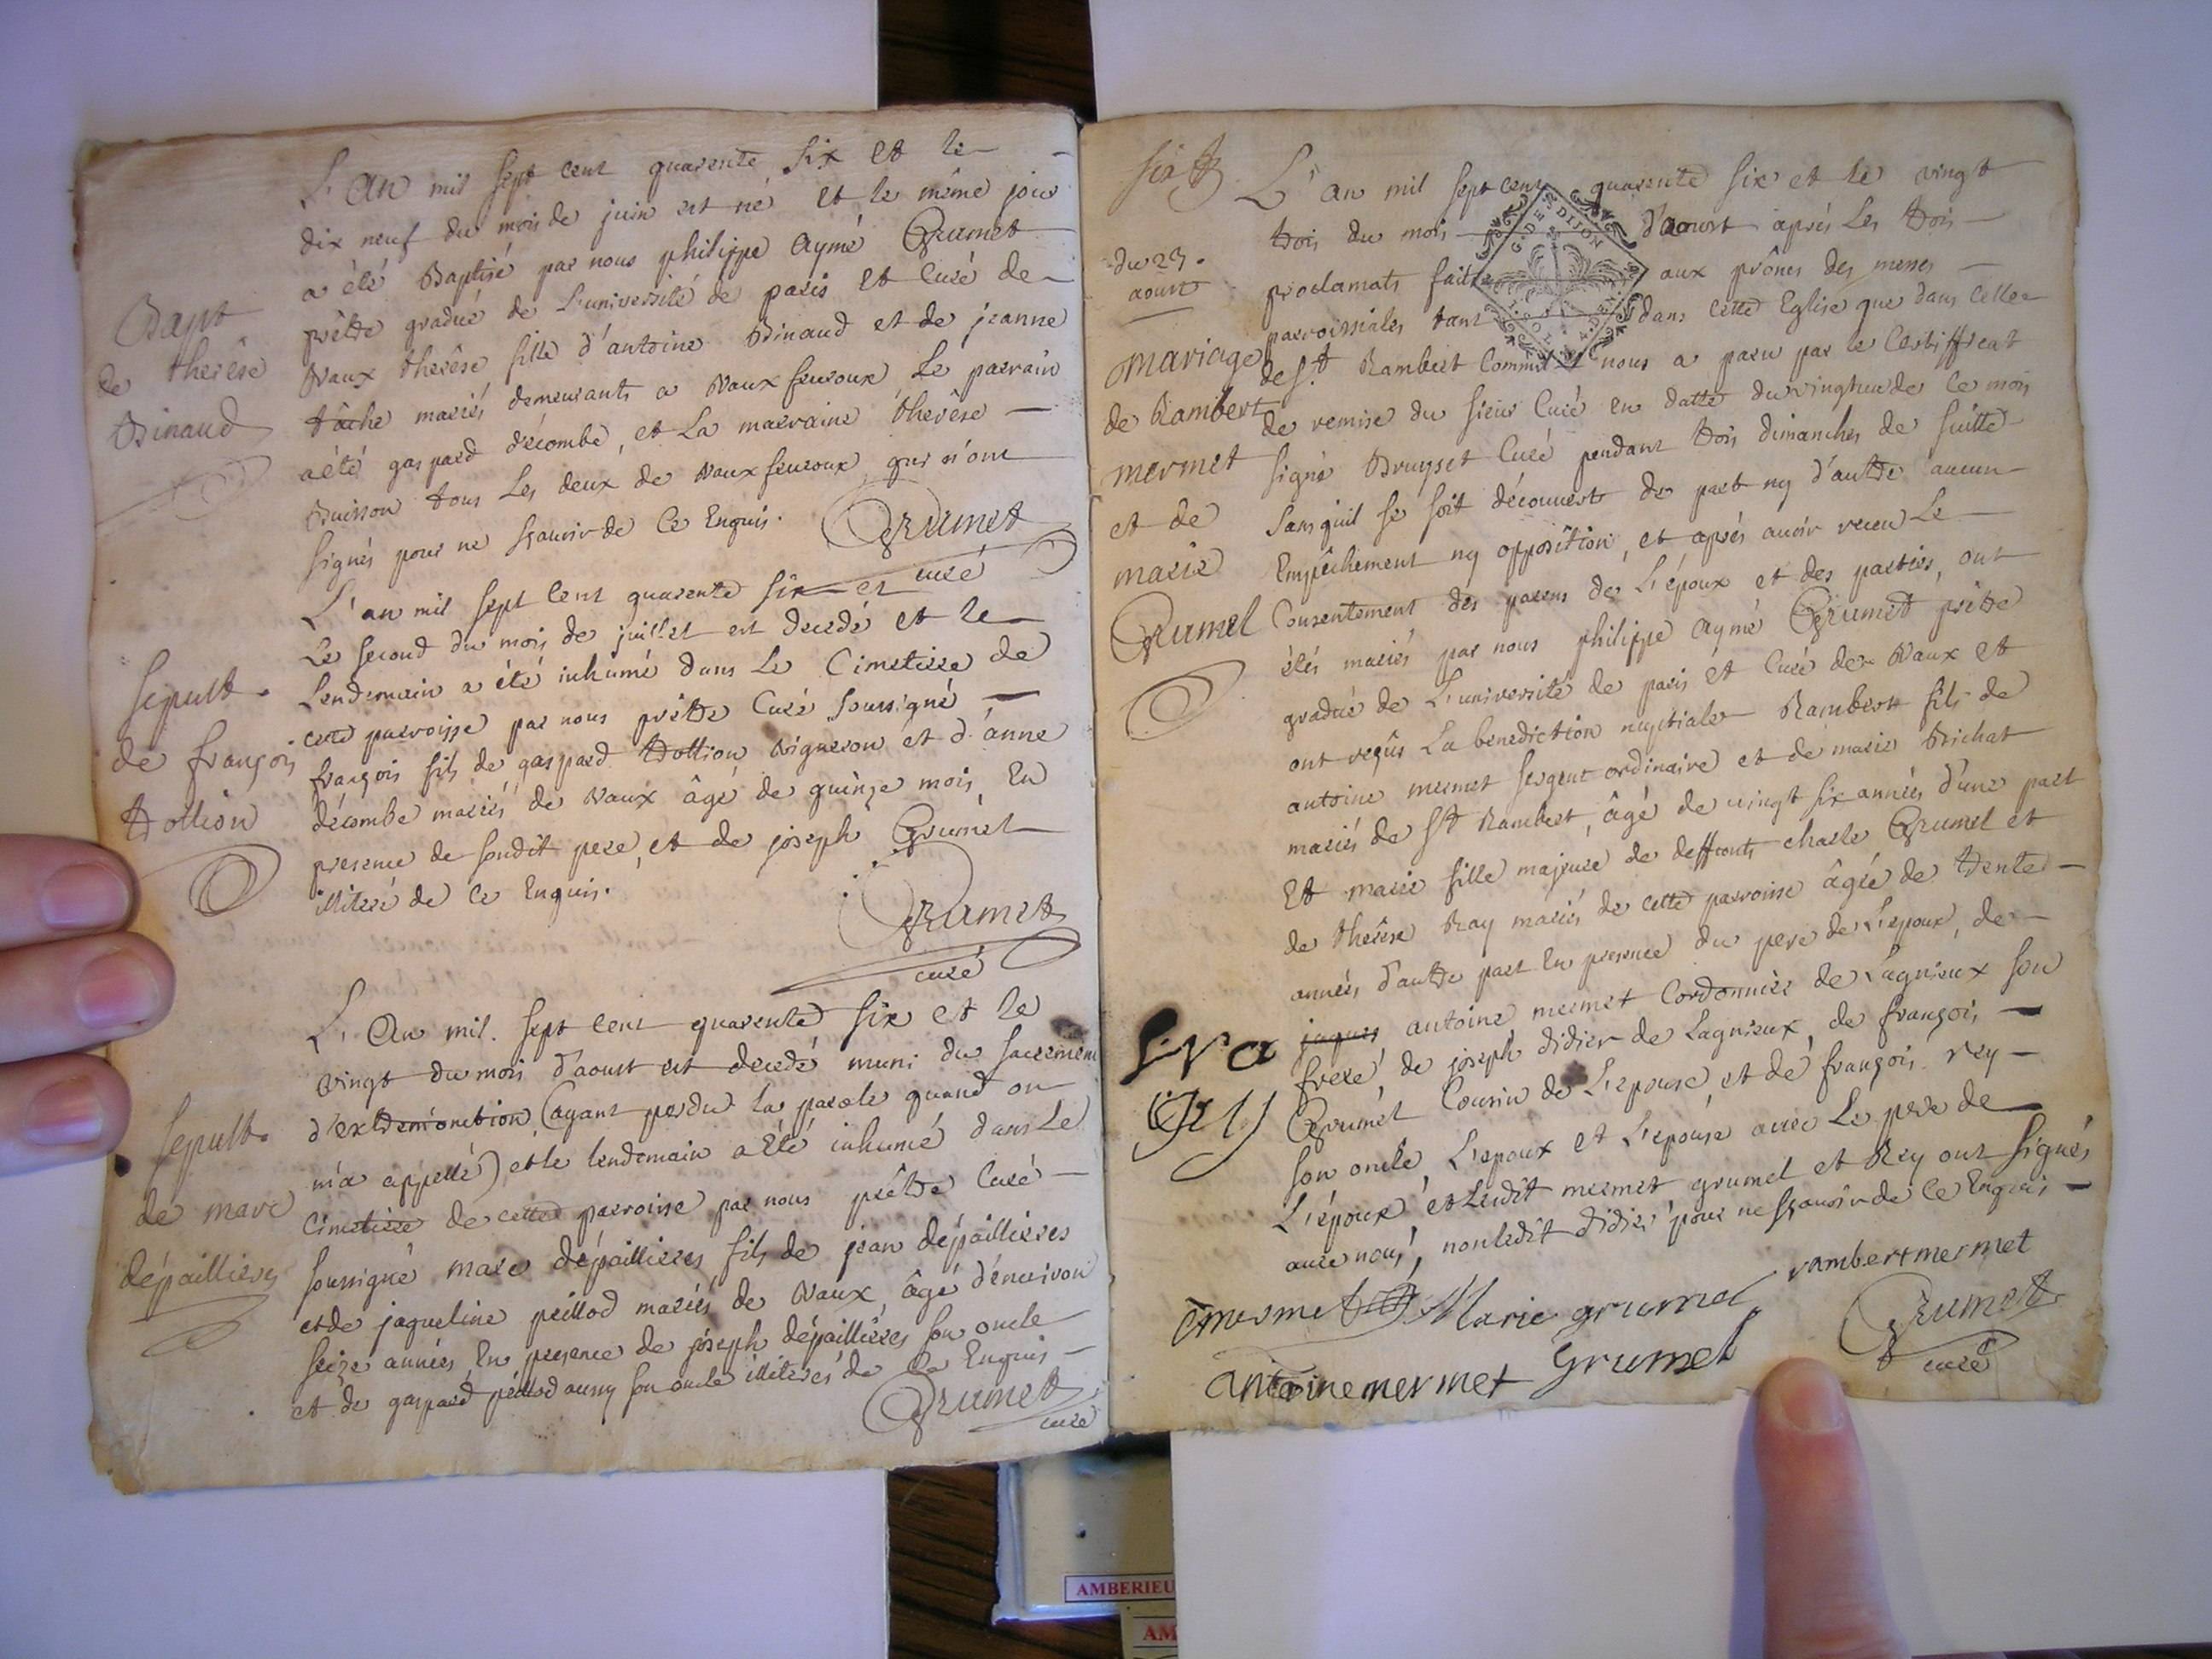 L'an mil sept cent quarente six et le
dix neuf du mois de juin est né et le même jour
a été Baptisé par nous philippe Aymé Grumet
prêtre gradué de L'université de paris et Curé de
Vaux therêse fille d'antoine Binaud et de jeanne
tâche mariés demeurants a Vaux fevroux, Le parrain
a été gaspard décombe, et La marraine therêse
Buisson tous Les deux de Vaux fevroux qui n'ont
signés pour ne sçavoir de Ce Enquis.
Grumet
curé
Bapt
de therêse
Binaud
L'an mil sept cent quarente six et
Le second du mois de juillet est decedé et le
Lendemain a été inhumé dans Le Cimetiere de
cette parroisse par nous prêtre Curé soussigné
françois fils de gaspard trollion vigneron et d'anne
décombe mariés de Vaux âgé de quinze mois, En
presence de sondit pere, et de joseph Grumet
illiteré de Ce Enquis.
Grumet
curé
sepult.
de françois
trollion
L'An mil sept cent quarente six et le
vingt du mois d'aoust est decedé muni du sacrement
d'extremonction, (ayant perdu la parole quand on
m'a appellé) et le lendemain a été inhumé dans Le
Cimetiere de cette parroisse par nous prêtre Curé
soussigné marc dépaillieres fils de jean dépaillieres
et de jaqueline peillod mariés de Vaux, âgé d'environ
seize années, En presence de joseph dépaillieres son oncle
et de gaspard peillod aussy son oncle illiterés de Ce Enquis
Grumet
curé
sepult.
de marc
dépaillieres
six
L'an mil sept cent quarente six et le vingt
trois du mois d'aoust après Les trois
proclamats faites aux prônes des messes
parroissiales tant dans cette Eglise que dans Celle
de St Rambert Comme il nous a paru par le Certifficat
de remise du sieur Curé en datte du vingtun de ce mois
signé Bruyset Curé pendant trois dimanches de suitte
sans quil se soit découvert de part ny d'autre aucun
Empêchement ny opposition, et après avoir receu Le
Consentement des parens de L'époux et des parties, ont
étés mariés par nous philippe Aymé Grumet prêtre
gradué de L'université de paris et Curé de Vaux et
ont reçûs La benediction nuptiale Rambert fils de
antoine mermet sergent ordinaire et de marie Bichat
mariés de St Rambert, âgé de vingt six années d'une part
Et marie fille majeure de deffunts charle Grumel et
de therêse Ray mariés de cette parroisse âgée de trente
années d'autre part En presence du pere de L'epoux, de
jaques antoine mermet Cordonnier de Lagnieux son
frere, de joseph didier de Lagnieux, de françois
Grumet Cousin de L'epouse, et de françois rey
son oncle, L'epoux et L'epouse avec Le pere de
L'époux, et Lesdit mermet, grumel et Rey ont signés
avec nous, non ledit didier pour ne sçavoir de Ce Enquis
rambert mermet
Marie grumel
antoine mermet
Grumel
Grumet
curé
du 23.
aoust
mariage
de Rambert
mermet
et de
marie
Grumel
G. DE DIJON
AMBERIEU
AM